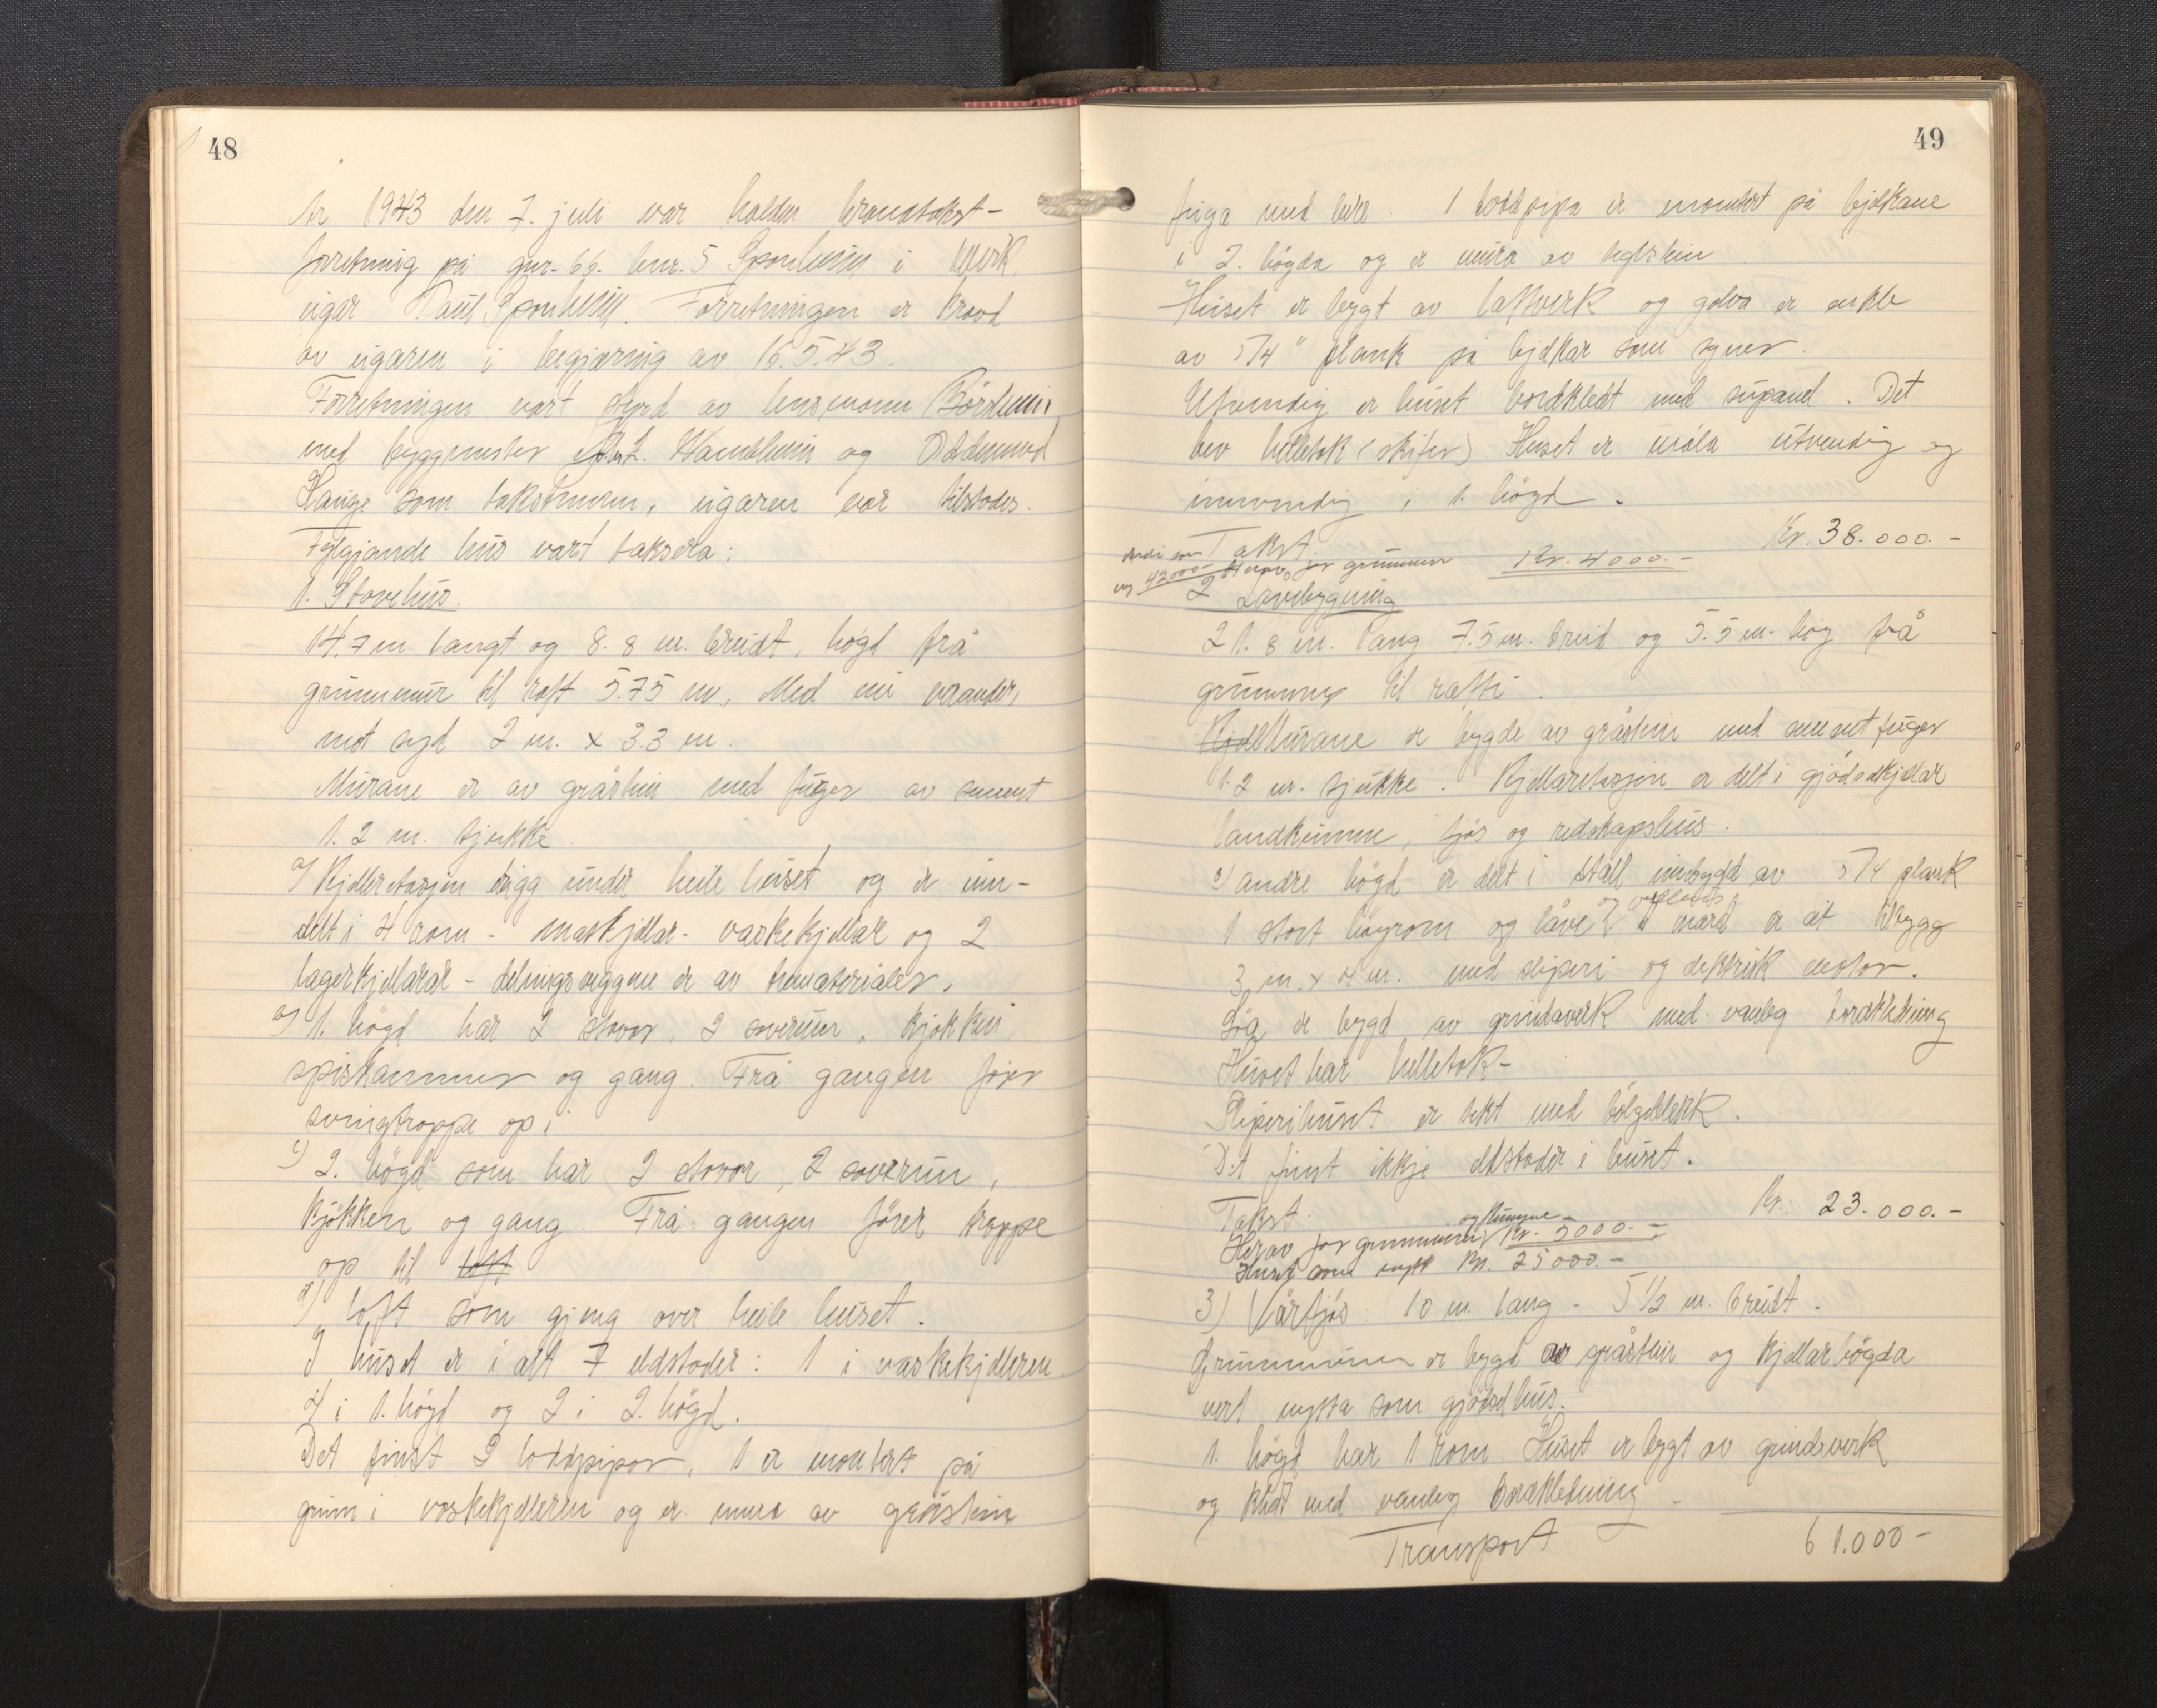 48
År 1943 den 7. juli var halden branntakst-
forretning på gnr. 66. bnr. 5 Sponheim i Ulvik
eigar Paul Sponheim. Forretningen er kravd
av eigaren i begjæring av 16.5.43.
Forretningen vart styrd av lensmann Börsheim
med byggmester L. Hamsheim og Oddmund
Lange som takstmenn, eigaren var tilstades.
Fylgjande hus vart taksera:
1. Stovehus.
14.7 m. langt og 8.8 m. breidt, högd frå
grunnmur til raft 5.75 m, Med ein verander,
mot syd 2 m. x 3.3 m.
Murane er av gråstein med fuger av sement
1.2 m. tjukke.
a) Kjelleretasjen ligg under heile huset og er inn-
delt i 4 rom - matkjellar - vaskekjellar og 2
lagerkjellarar - delingsveggene er av trematerialer.
b) 1. högd har 2 stover, 2 soverum, kjökken
spiskammer og gang. Frå gangen förer
svingtrappe op i
c) 2. högd som har 2 stover, 2 soverum,
kjökken og gang. Frå gangen förer trappe
op til loft
d) loft som gjeng over heile huset.
I huset er i alt 7 eldstader: 1 i vaskekjelleren
4 i 1. högd og 2 i 2. högd.
Det finst 2 loddpipor, 1 er montert på
grunn i vaskekjelleren og er mura av gråstein
49
fuga med leire. 1 loddpipa er montert på bjelkane
i 2. högda og er mura av teglstein
Huset er bygt av laftverk og golva er enkle
av 5/4" plank på bjelkar som syner.
Utvendig er huset bordkledt med supanel. Det
hev helletak (skifer) Huset er måla utvendig og
innvendig i 1. högd.
Takst. Kr. 38.000.-
verdi som
ny 42000- Herav for grunnmur Kr. 4000.-
2 Lövebygning
21.8 m. lang 7.5 m. breid og 5.5 m. hög frå
grunnmur til raft.
Kjellmurane er bygde av gråstein med sementfuger
1.2 m. tjukke. Kjellaretasjen er delt i gjödselkjellar
landkumme, fjös og redskapshus.
a) andre högd er delt i stall innbygd av 5/4 plank
1 stort höyrom og låve og I nord er eit tilbygg
3 m. x 4 m. med sliperi og elektrisk motor.
Löa er bygd av grindaverk med vanleg bordkledning
Huset har helletak-
Sliperihuset er tekt med bölgeblekk.
Det finst ikkje eldstader i huset.
Takst: Kr. 23.000.-
og kumme
Herav for grunnmurer Kr. 5000.-
Huset som nytt Kr. 25000.-
3) Vårfjös: 10 m. lang - 5 1/2 m. breidt.
Grunnmuren er bygd av gråstein og kjellarhögda
vert nytta som gjödselhus.
1. högd har 1 rom. Huset er bygt av grindaverk
og kledt med vanleg bordkledning -
Transport 61.000-